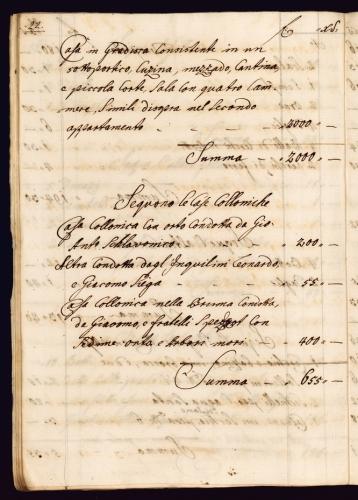 22. £ s:d:
Casa in Gradisca Consistente in un
sottoportico, Cucina, mezzado, Cantina,
e piccola Corte, Sala Con quatro Cam=
mere, Simili disopra nel Secondo
appartamento - - - - 2000 " —
Summa - " 2000 " —
Seguono le Case Colloniche
Casa Collonica Con orto Condotta da Gio
Anto Schlavonico - - - " 200 " —
Altra Condotta dagl Inquilini Leonardo,
e Giacomo Siega - - - " 55 " —
Casa Collonica nella Bruma Condotta
da Giacomo, e fratelli Con
Sedime orto, e Arbori mori - " 400 " —
Summa - " 655 " —